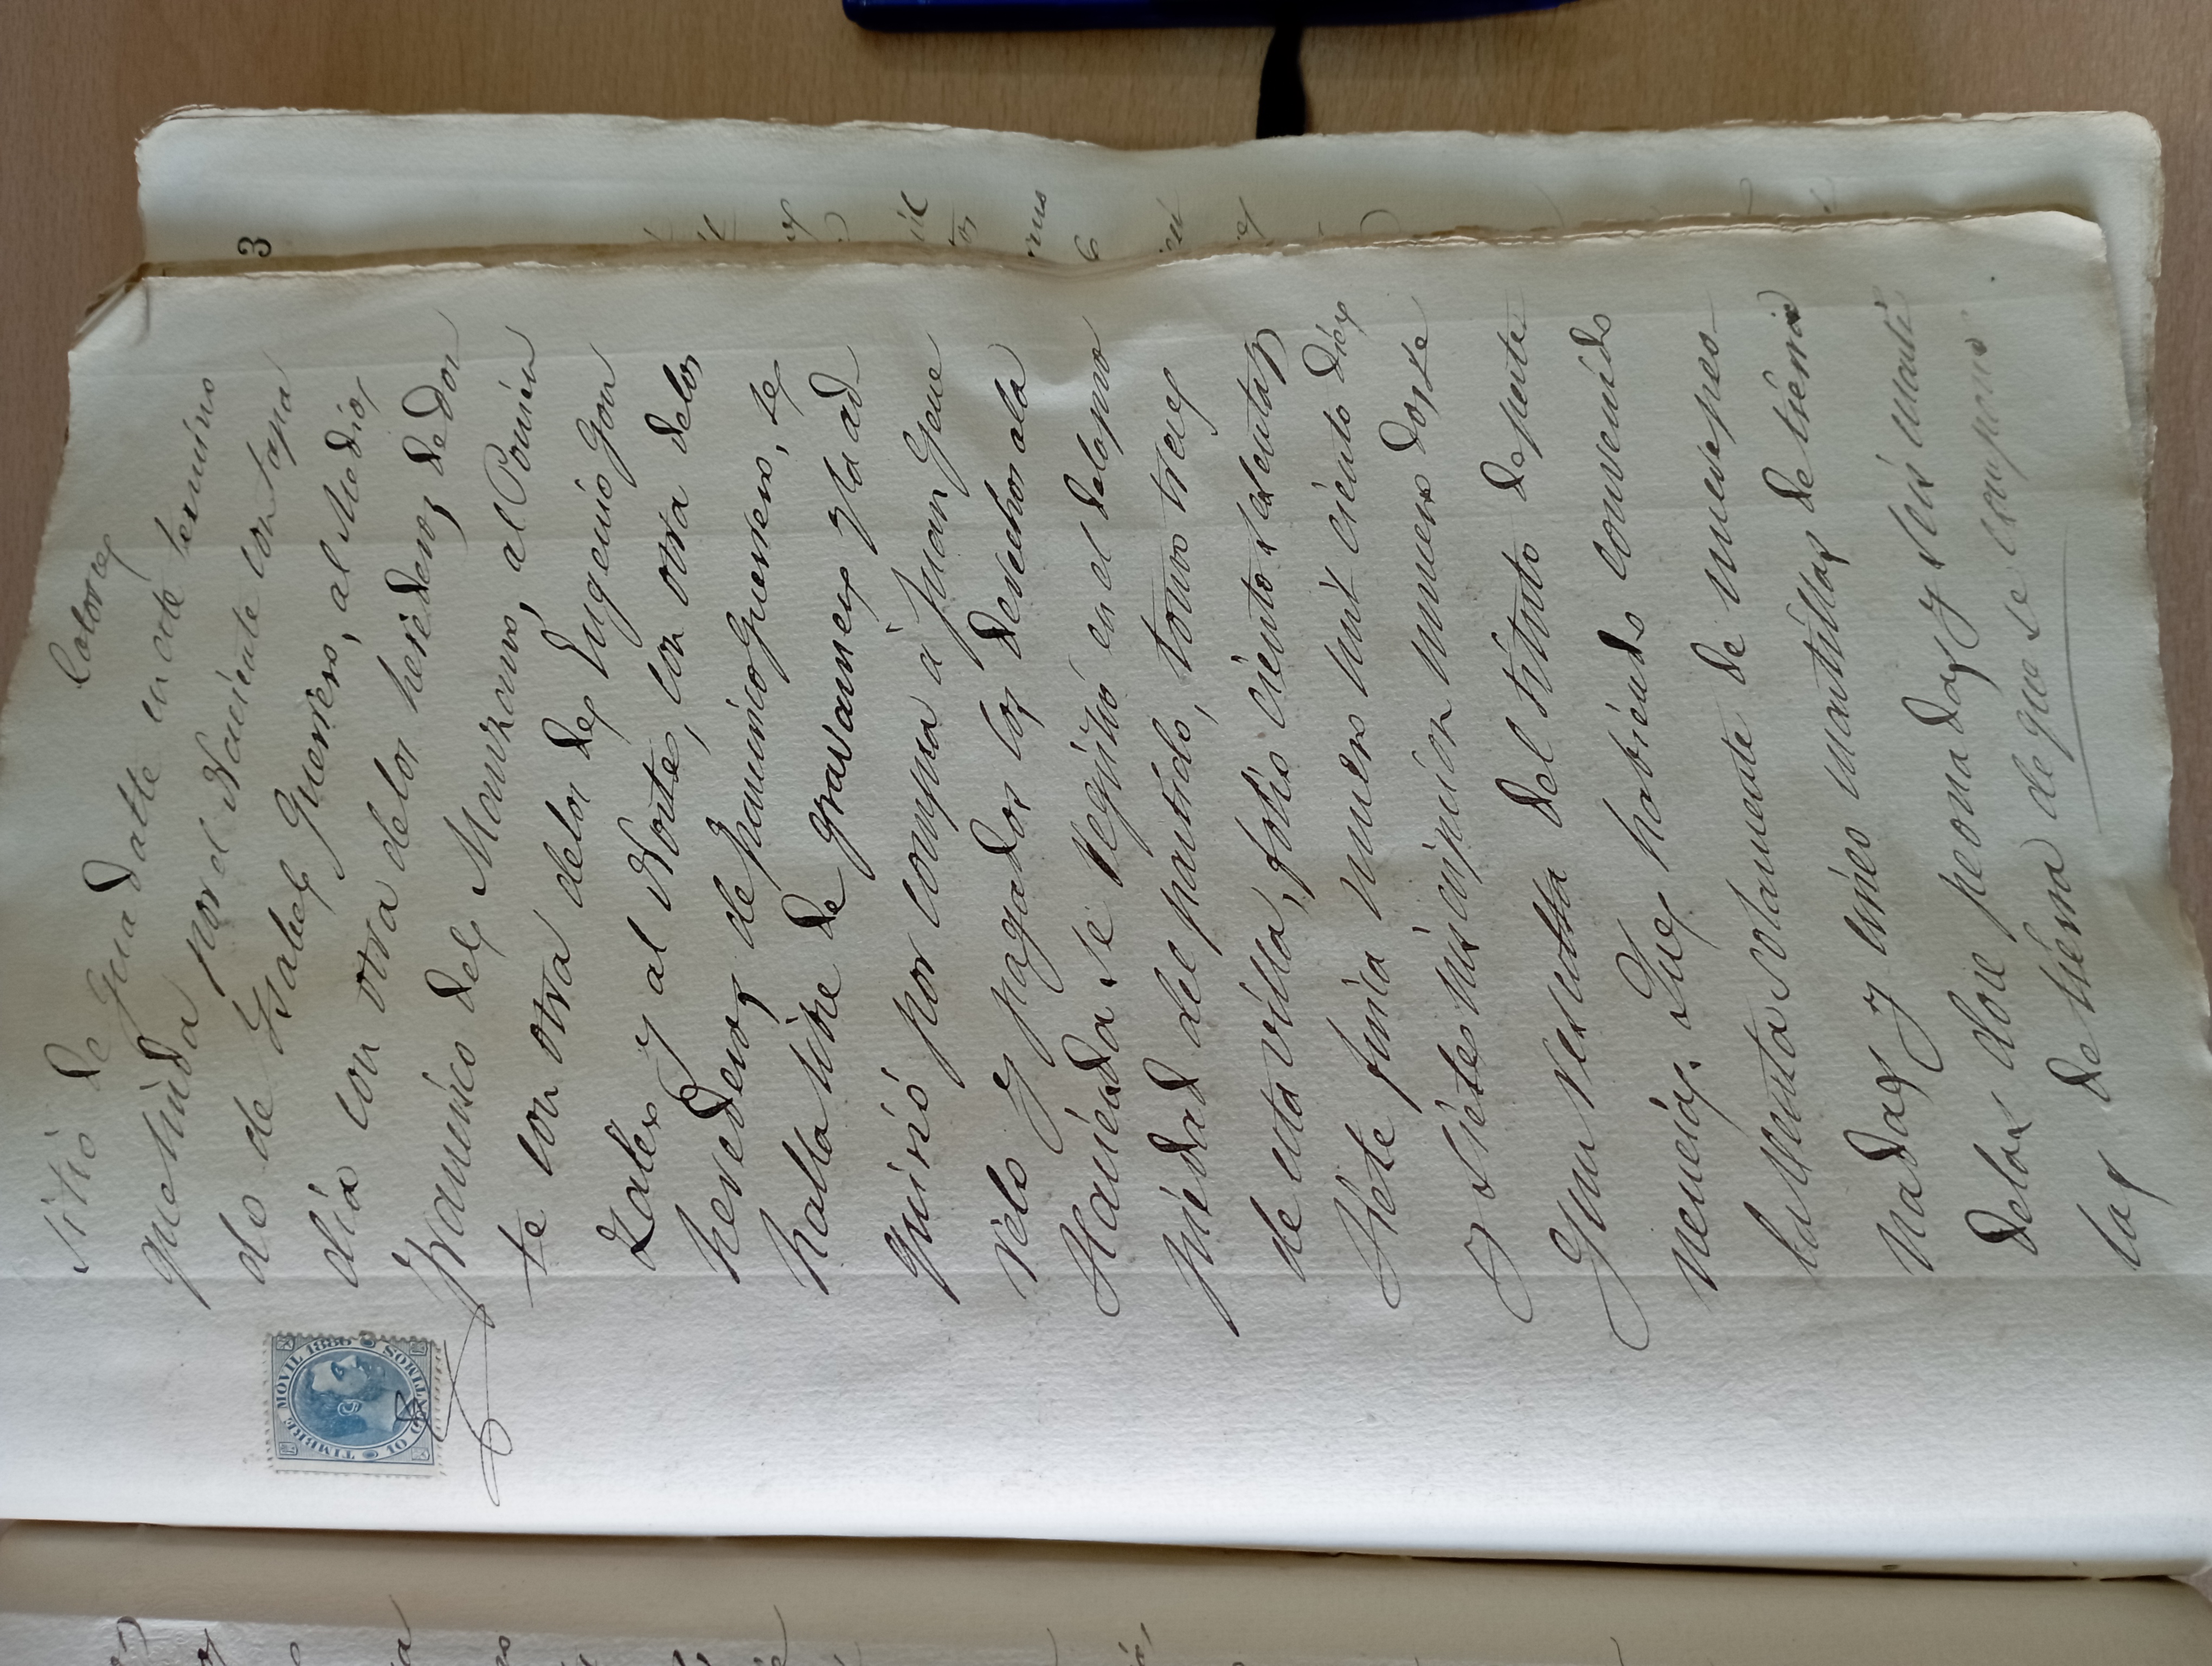 catorce
sitio de Guadalte en este termino
que linda por el Naciente con tapa
do de Ysabel Guerrero, al Medio
dia con otra delos herederos de Don
Francisco del Manzano, al Ponien
te con otra delos de Eugenio Gon
zalez y al Norte, con otra delos
herederos de Francisco Guerrero, se
halla libre de gravamen y la ad-
quirió por compra á Juan
y pagados los derechos ala
Hacienda se registró en el dela pro
piedad del partido, tomo trece
de esta villa, folio ciento sesenta y
siete finca numero mil ciento diez
y siete inscripcion numero dos, se
gun resulta del titulo de perte-
nencia. Que habiendo convenido
la Venta solamente de nueve peo-
nadas y cinco martillas de tierra
delas doce peonadas y seis marti
las de tierra de que se compone
TIMBRE MOVIL 1886
10 CENTIMOS
3